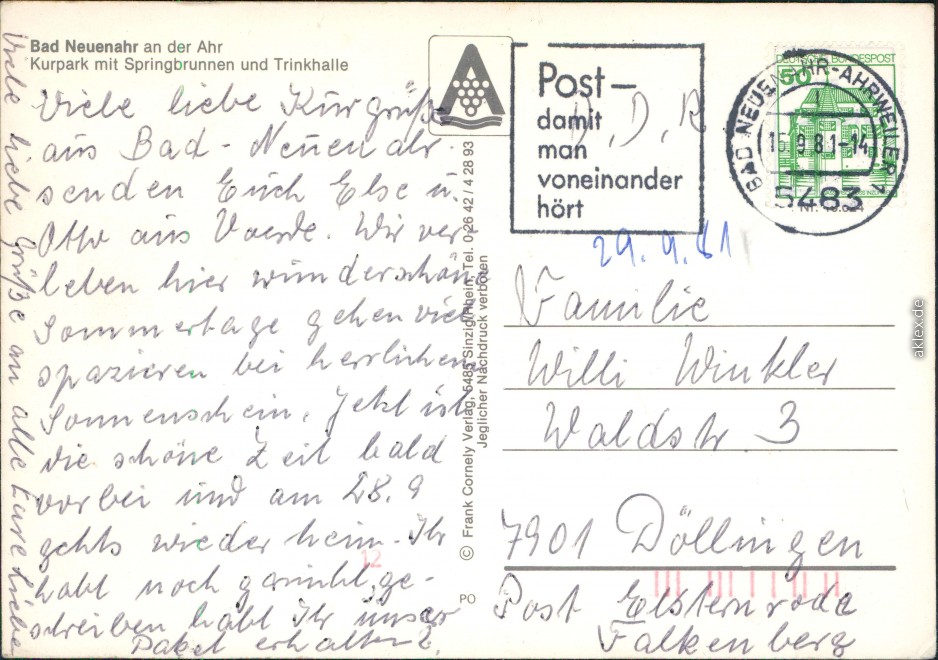 Bad Neuenahr an der Ahr
Kurpark mit Springbrunnen und Trinkhalle
Viele liebe Kurgrüße
aus Bad-Neuenahr
senden Euch Else u.
Otto aus Voerde. Wir ver-
leben hier wunderschöne
Sommertage gehen viel
spazieren bei herrlichen
Sonnenschein. Jetzt ist
die schöne Zeit bald
vorbei und am 28.9
gehts wieder heim. Ihr
habt noch garnicht ge-
schrieben habt Ihr unser
Paket erhalten?
Viele liebe Grüße an alle Eure Liebe
© Frank Cornely Verlag, 5485 Sinzig/Rhein, Tel. 0 26 42 / 4 28 93
Jeglicher Nachdruck verboten
PO
12
Post –
damit
man
voneinander
hört
D, D, R
DEUTSCHE BUNDESPOST
50
BAD NEUENAHR-AHRWEILER 1
16.9.81-14
5483
29.9.81
Familie
Willi Winkler
Waldstr 3
7901 Döllingen
Post Elsternrode
Falkenberg
aklex.de